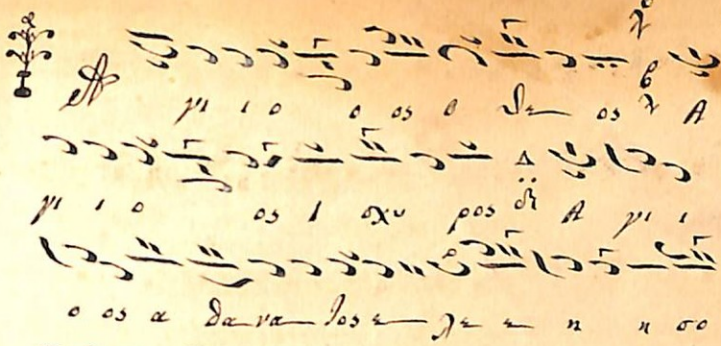 Α γι ι ο ο ος ο θε ος Α
γι ι ο ος Ι σχυ ρος Α γι ι
ο ος α θα να τος ε λε ε η η σο